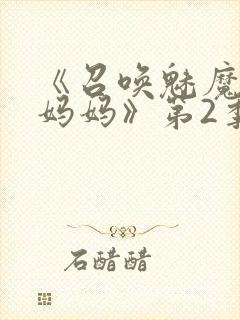 《召唤魅魔
妈妈》第2季
石醋醋